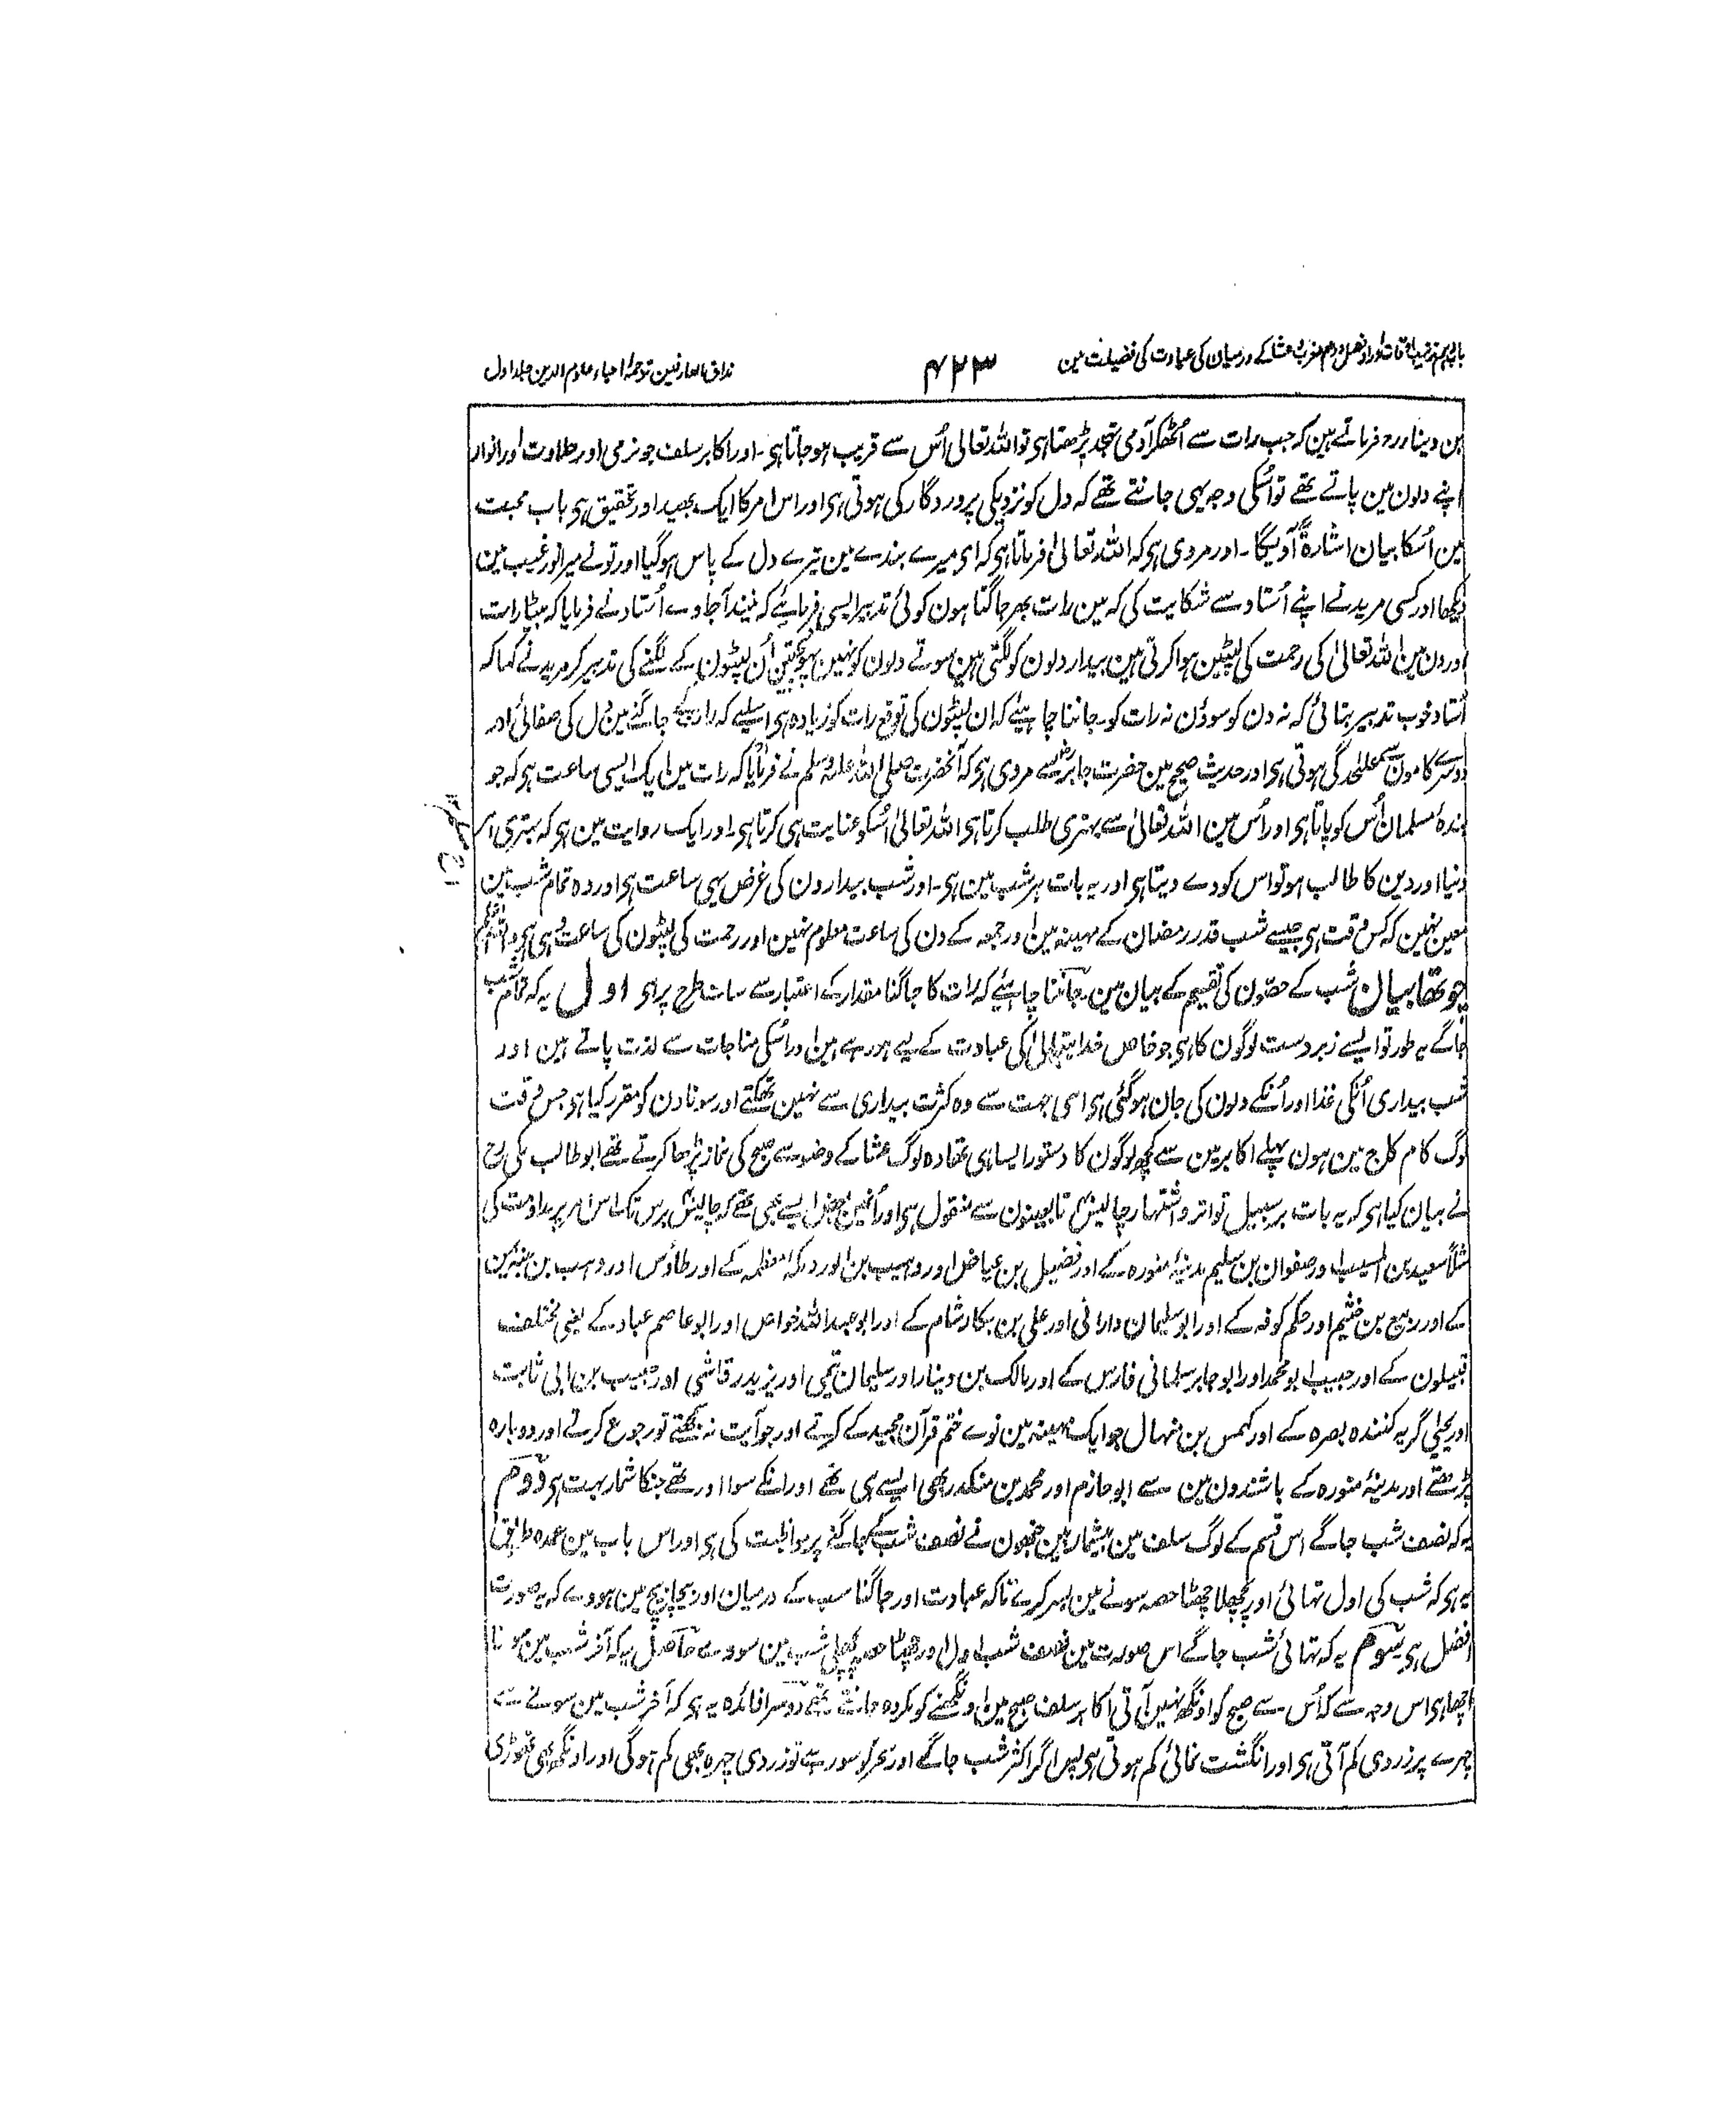 باب دہم ترتیب اوقات اوراد فصل دوم مغرب و عشا کے درمیان کی عبادت کی فضیلت مین
۴۲۳
مذاق العارفین ترجمۂ احیاء علوم الدین جلد اول
بن دینار رح فرماتے ہین کہ جب رات سے اُٹھکر آدمی تہجد پڑھتا ہی تو اللہ تعالی اُس سے قریب ہو جاتا ہی۔ اور اکابر سلف جو نرمی اور حلاوت اور انوار
اپنے دلون مین پاتے تھے تو اُسکی وجہ یہی جانتے تھے کہ دل کو نزدیکی پروردگار کی ہوتی ہی اور اس امر کا ایک بھید اور تحقیق ہی باب محبت
مین اُسکا بیان اشارۃً آویگا۔ اور مروی ہی کہ اللہ تعالیٰ فرماتا ہی کہ ای میرے بندے مین تیرے دل کے پاس ہو گیا اور تونے میرا نور غیب مین
دیکھا اور کسی مرید نے اپنے اُستاد سے شکایت کی کہ مین رات بھر جاگتا ہون کوئی تدبیر ایسی فرمائیے کہ نیند آجاوے اُستاد نے فرمایا کہ بیٹا رات
اور دن مین اللہ تعالیٰ کی رحمت کی لپٹین ہوا کرتی ہین بیدار دلون کو لگتی ہین سوتے دلون کو نہین پہونچتین اُن لپٹون کے لگنے کی تدبیر کر مرید نے کہا کہ
اُستاد خوب تدبیر بتائی کہ نہ دن کو سوؤن نہ رات کو۔ جاننا چاہیئے کہ ان لپٹون کی توقع رات کو زیادہ ہی اسلیے کہ رات کے جاگنے مین دل کی صفائی اور
دوسرے کامون سے علٰحدگی ہوتی ہی اور حدیث صحیح مین حضرت جابر رض سے مروی ہی کہ آنحضرت صلی اللہ علیہ وسلم نے فرمایا کہ رات مین ایک ایسی ساعت ہی کہ جو
بندۂ مسلمان اُس کو پاتا ہی اور اُس مین اللہ تعالیٰ سے بہتری طلب کرتا ہی اللہ تعالیٰ اُسکو عنایت ہی کرتا ہی۔ اور ایک روایت مین ہی کہ بہتری امر
دنیا اور دین کا طالب ہو تو اس کو دے دیتا ہی اور یہ بات ہر شب مین ہی۔ اور شب بیدارون کی غرض یہی ساعت ہی اور وہ تمام شب مین
معین نہین کہ کس وقت ہی جیسے شب قدر رمضان کے مہینہ مین اور جمعہ کے دن کی ساعت معلوم نہین اور رحمت کی لپٹون کی ساعت وہی ہی واللہ اعلم
چوتھا بیان شب کے حصّون کی تقسیم کے بیان مین۔ جاننا چاہیئے کہ رات کا جاگنا مقدار کے اعتبار سے سات طرح پر ہی اول یہ کہ تمام شب
جاگے یہ طور تو ایسے زبردست لوگون کا ہی جو خاص خدایتعالیٰ کی عبادت کے لیے ہو رہے ہین اور اُسکی مناجات سے لذت پاتے ہین اور
شب بیداری اُنکی غذا اور اُنکے دلون کی جان ہو گئی ہی اسی جہت سے وہ کثرت بیداری سے نہین تھکتے اور سونا دن کو مقرر کیا ہی جس وقت
لوگ کام کاج مین ہون پہلے اکابر مین سے کچھ لوگون کا دستور ایسا ہی تھا وہ لوگ عشا کے وضو سے صبح کی نماز پڑھا کرتے تھے ابو طالب مکی رح
نے بیان کیا ہی کہ یہ بات برسبیل تواتر و اشتہار چالیس تابعیون سے منقول ہی اور اُنمین بعض ایسے بھی تھے کہ چالیس برس تک اس امر پر مداومت کی
مثلاً سعید بن المسیب اور صفوان بن سلیم مدینۂ منورہ کے اور فضیل بن عیاض اور وہیب بن الورد مکۂ معظمہ کے اور طاؤس اور وہب بن منبہ یمن
کے اور ربیع بن خثیم اور حکم کوفہ کے اور ابو سلیمان دارانی اور علی بن بکار شام کے اور ابو عبد اللہ خواص اور ابو عاصم عباد کے یعنی مختلف
قبیلون کے اور حبیب ابو محمد اور ابو جابر سلمانی فارس کے اور مالک بن دینار اور سلیمان تیمی اور یزید رقاشی اور حبیب بن ابی ثابت
اور یحییٰ گریہ کنندہ بصرہ کے اور کہمس بن منہال جو ایک مہینہ مین نوے ختم قرآن مجید کے کرتے اور جو آیت نہ سمجھتے تو رجوع کرتے اور دوبارہ
پڑھتے اور مدینۂ منورہ کے باشندون مین سے ابو حازم اور محمد بن منکدر بھی ایسے ہی تھے اور انکے سوا اور تھے جنکا شمار بہت ہی دوم
یہ کہ نصف شب جاگے اس قسم کے لوگ سلف مین بیشمار ہین جنھون نے نصف شب کے جاگنے پر مواظبت کی ہی اور اس باب مین عمدہ طریق
یہ ہی کہ شب کی اول تہائی اور پچھلا چھٹا حصہ سونے مین بسر کرے تاکہ عبادت اور جاگنا شب کے درمیان اور بیچا بیچ مین ہووے کہ یہ صورت
افضل ہی سوم یہ کہ تہائی شب جاگے اس صورت مین نصف شب اول اور چھٹا حصہ پچھلی شب مین سووے حاصل یہ کہ آخر شب مین سونا
اچھا ہی اس وجہ سے کہ اُس سے صبح کو اونگھ نہین آتی اکابر سلف صبح مین اونگھنے کو مکروہ جانتے تھے دوسرا فائدہ یہ ہی کہ آخر شب مین سونے سے
چہرے پر زردی کم آتی ہی اور انگشت نمائی کم ہوتی ہی پس اگر اکثر شب جاگے اور سحر کو سو رہے تو زردی چہرہ بھی کم ہوگی اور اونگھ بھی تھوڑی